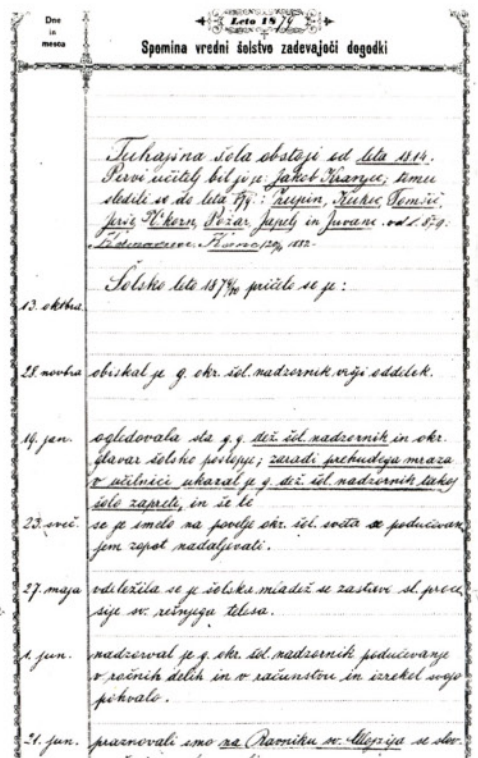 Dne
in
mesca
Leto 1879
Spomina vredni šolstvo zadevajoči dogodki
Tuhajina šola obstoji od leta 1814.
Pervi učitelj bil ji je: Jakob Kranjec; temu
sledili so do leta 879: Zupin, Kukec, Tomšič,
Jerič, Požar, Japelj in Juvanc. od l. 879:
1882.
Šolsko leto 1879/80 pričelo se je:
13. oktobra
28. novbra obiskal je g. okr. šol. nadzornik višji oddelek.
19. jan. ogledovala sta g. g. dež. šol. nadzornik in okr.
glavar šolsko poslopje; zaradi prehudega mraza
v učilnici ukazal je g. dež. šol. nadzornik takoj
šolo zapreti, in še le
23. sveč. se je smelo na povelje okr. šol. sveta s podučevan
jem zopet nadaljevati.
27. maja vdeležila se je šolska mladež se zastavi sl. proce
sije sv. rešnjega telesa.
1. jun. nadzorval je g. okr. šol. nadzornik podučevanje
v ročnih delih in v računstvu in izrekel svojo
pohvalo.
21. jun. praznovali smo na Ravniku sv. Alojzija se slov.